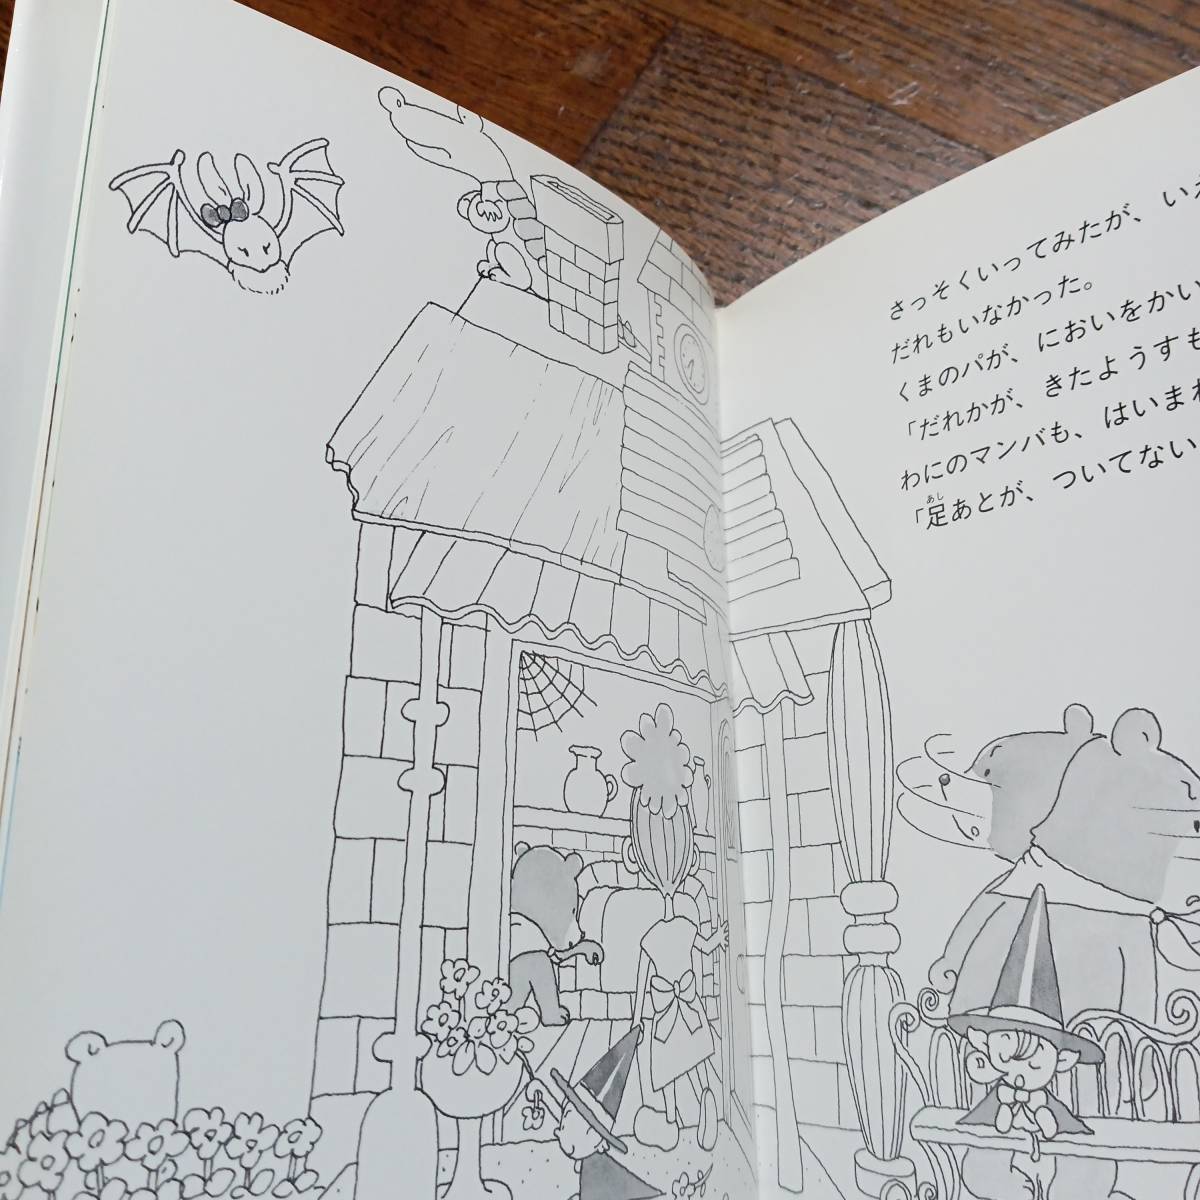 さっそくいってみたが、いえ
だれもいなかった。
くまのパが、においをかい
「だれかが、きたようすも
わにのマンバも、はいまわ
「足あとが、ついてない
あし